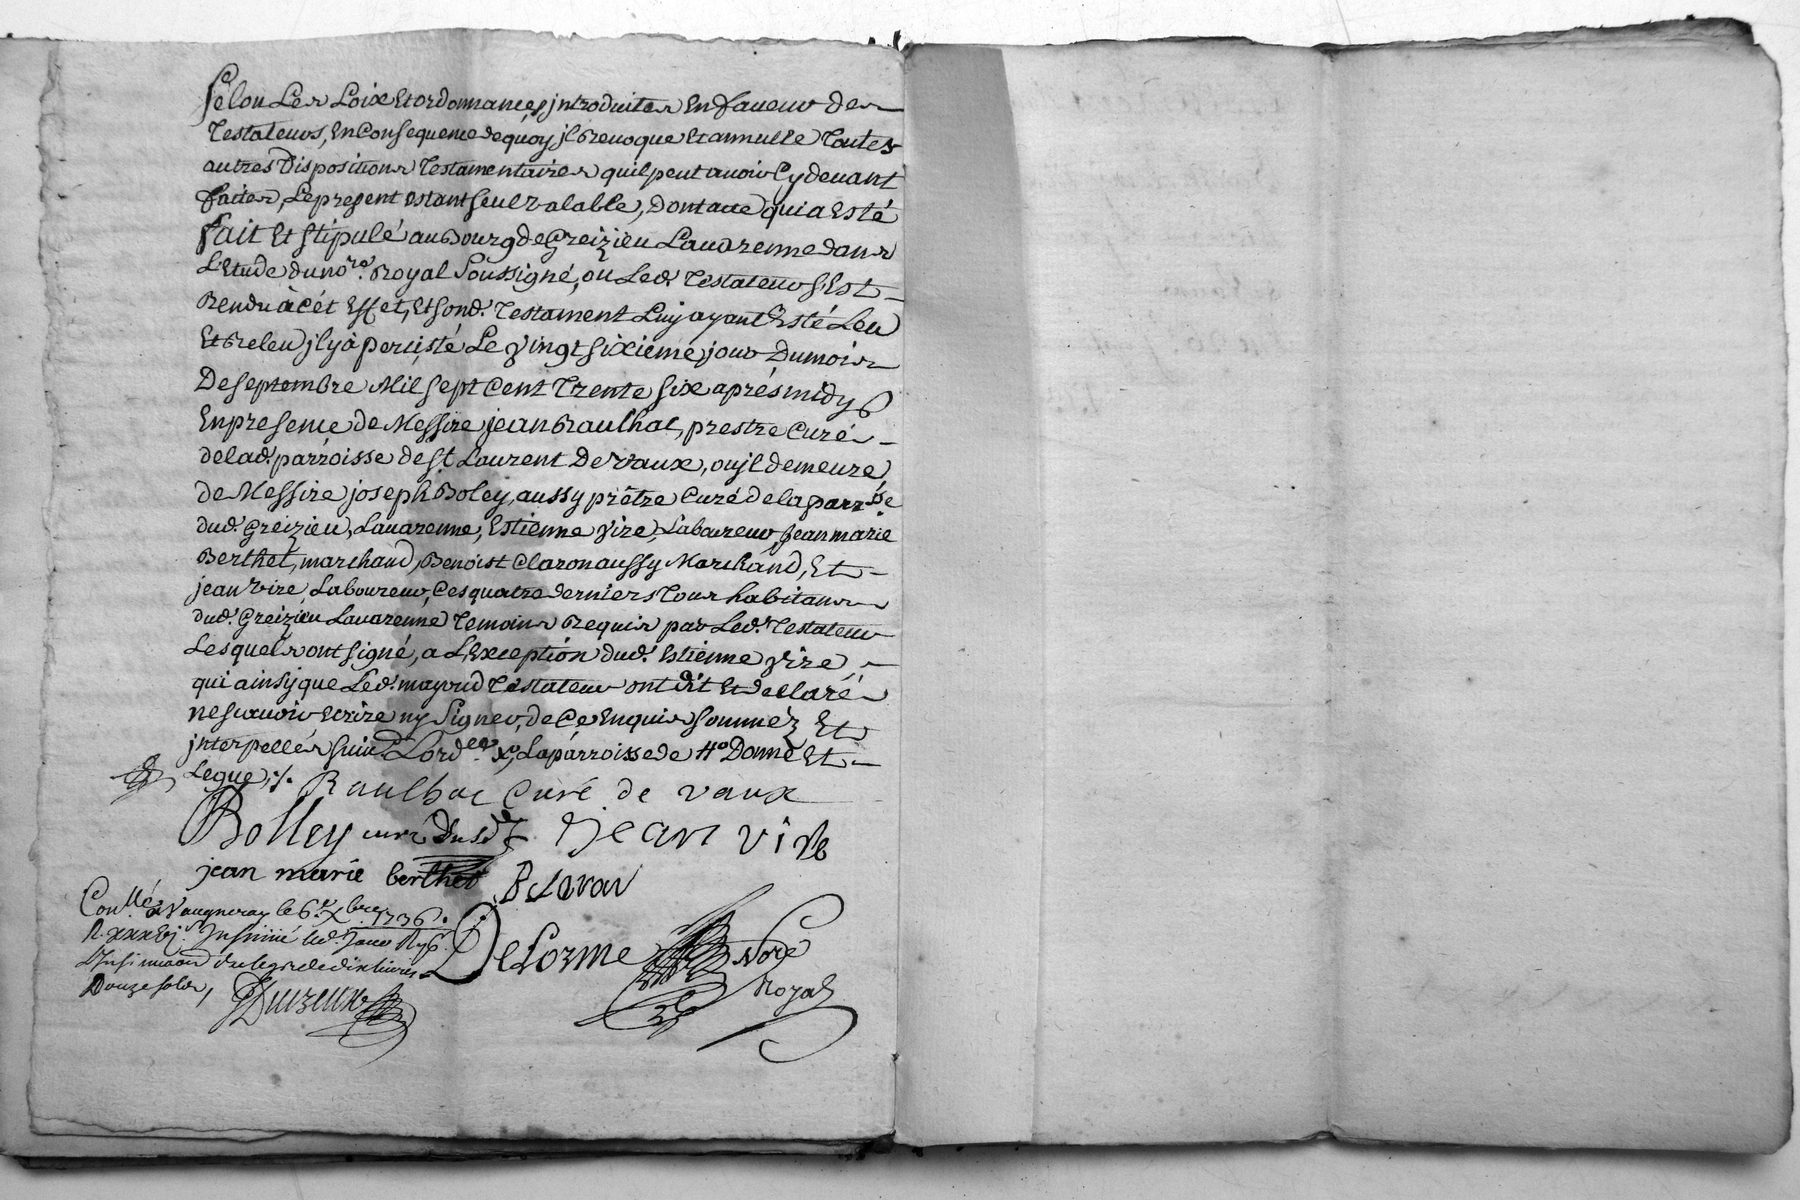 selon Les Loix Et ordonnances jntroduites En faveur des
Testateurs, En Consequence de quoy jl Revoque Et annulle Toutes
autres Dispositions Testamentaires quil peut avoir Cy devant
faites, Le present Estant seul valable, Dont acte qui a Esté
fait Et stipulé au Bourg de Greizieu Lavarenne dans
L'Etude du no.re Royal Soussigné, ou Led. Testateur s'Est
Rendu à cét Effet, Et sond. Testament Luy ayant Esté Leu
Et Releu jl y à percisté Le vingt sixieme jour Du mois
De septembre Mil sept Cent Trente six aprés midy
En presence de Messire jean Raulhac, prestre Curé
de lad. parroisse de St Laurent De Vaux, ou jl demeure,
de Messire joseph Boley, aussy prêtre Curé de la parr.sse
dud. Greizieu, Lavarenne, Estienne vire, Laboureur, Jean marie
Berthet, marchand, Benoist Claron aussy Marchand, Et
jean Vire, Laboureur, Ces quatre derniers Tous habitans
dud. Greizieu Lavarenne Temoins Requis par Led. Testateur
Lesquels ont signé, a L'Exception dud. Estienne vire,
qui ainsy que Led. mayoud Testateur ont dit Et declaré
ne sçavoir Ecrire ny Signer, de Ce Enquis sommez Et
jnterpellés suiv.t L'ord.ce La parroisse de Donne Et
Legue
Raulhac Curé de vaux
Bolley curé Dud
jean vire
jean marie berthet
B Claron
Con.llé à Vaugneray le 6.e Xbre 1736.
R. xxx Insinué led. jour R
L'Insinuaon du legs de dix livres
Douze sols,
DeLorme
No.re
Royal